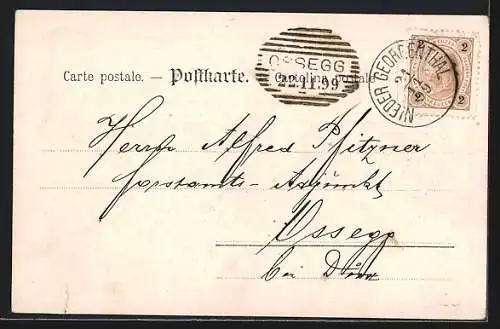 OSSEGG
22.11.99
NIEDER GEORGENTHAL
2 2
2 2
Carte postale. — Postkarte. — Cartolina postale.
Herrn Alfred Pfitzner
Forstamts-Adjunkt
Ossegg
bei Dux